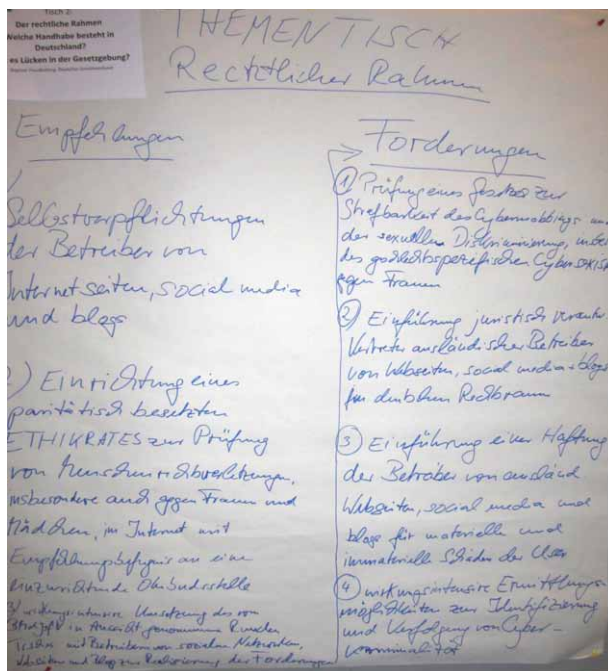 Tisch 2:
Der rechtliche Rahmen
Welche Handhabe besteht in
Deutschland?
es Lücken in der Gesetzgebung?
THEMENTISCH
Rechtlicher Rahmen
Empfehlungen
Selbstverpflichtungen
der Betreiber von
Internetseiten, social media
und blogs
2) Einrichtung eines
paritätisch besetzten
ETHIKRATES zur Prüfung
von Menschenrechtsverletzungen,
insbesondere auch gegen Frauen und
Mädchen, im Internet mit
Empfehlungsbefugnis an eine
einzurichtende Ombudsstelle
3) wirkungsintensive Umsetzung des vom
in Aussicht genommenen Runden
Tisches mit Betreibern von sozialen Netzwerken,
Webseiten und Blogs zur Realisierung der Forderungen
Forderungen
1 Prüfung eines Gesetzes zur
Strafbarkeit des Cybermobbings und
der sexuellen Diskriminierung, insbes
des geschlechtsspezifischen Cybersexis
gegen Frauen
2 Einführung juristisch verantw
Vertreter ausländischer Betreiber
von Webseiten, social media + blogs
im deutschen Rechtsraum
3 Einführung einer Haftung
der Betreiber von ausländ
Webseiten, social media und
blogs für materielle und
immaterielle Schäden der User
4 wirkungsintensive Ermittlungs
möglichkeiten zur Identifizierung
und Verfolgung von Cyber-
kriminalität